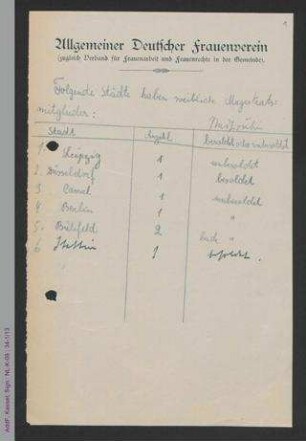 1
Allgemeiner Deutscher Frauenverein
(zugleich Verband für Frauenarbeit und Frauenrechte in der Gemeinde).
Folgende Städte haben weibliche Magistrats-
mitglieder:
Stadt Anzahl besoldet oder unbesoldet
1. Leipzig 1 unbesoldet
2. Düsseldorf 1 besoldet
3. Cassel 1 unbesoldet
4. Berlin 1 "
5. Bielefeld 2 beide "
6 Stettin 1 besoldet.
AddF, Kassel, Sign.: NL-K-08 ; 34-1/13